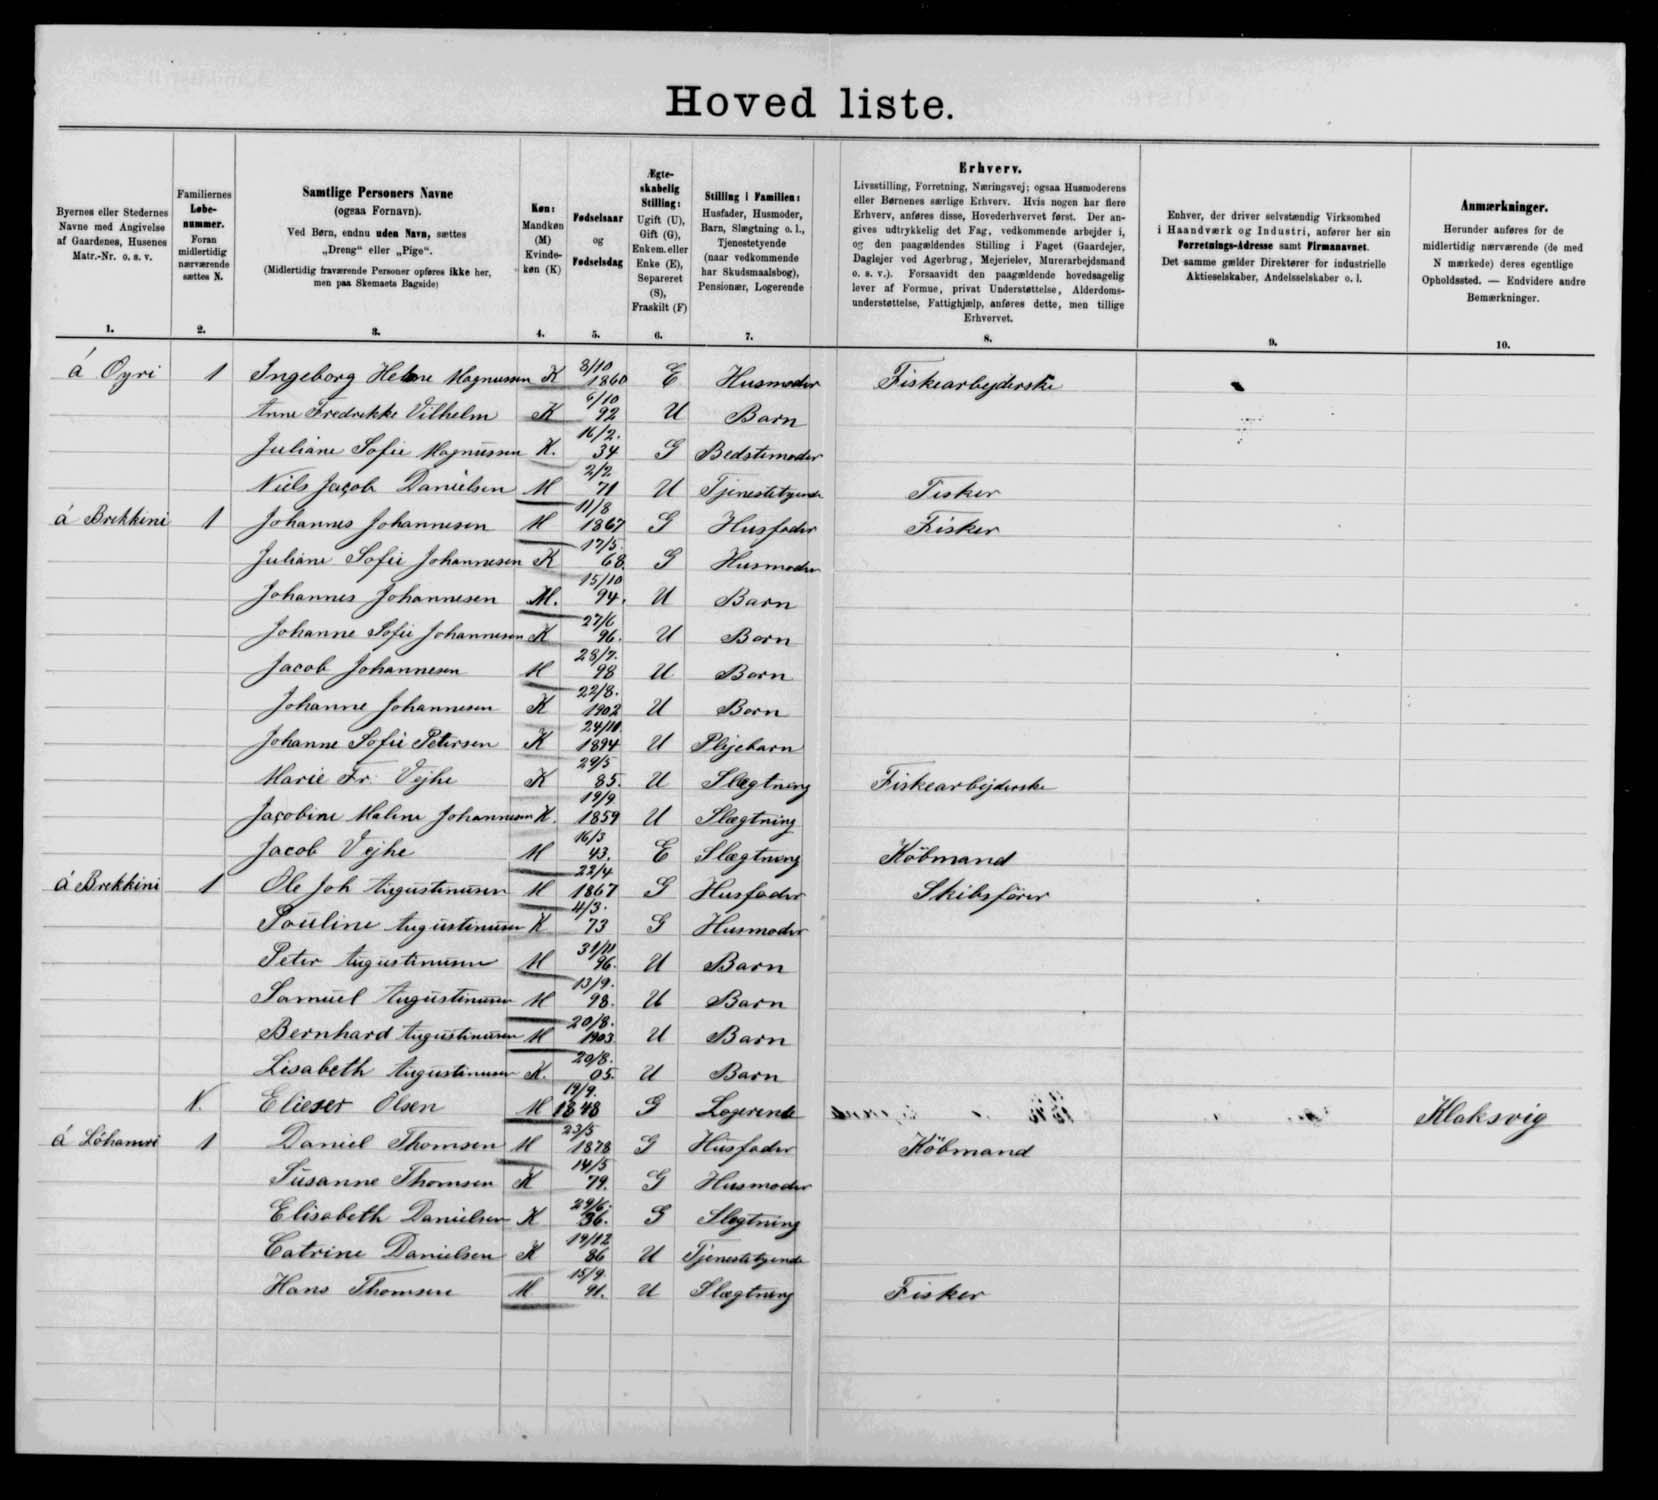 Hoved liste.
Byernes eller Stedernes Navne med Angivelse af Gaardenes, Husenes Matr.-Nr. o. s. v.
1.
Familiernes Løbe-nummer. Foran midlertidig nærværende sættes N.
2.
Samtlige Personers Navne
(ogsaa Fornavn).
Ved Børn, endnu uden Navn, sættes „Dreng“ eller „Pige“.
(Midlertidig fraværende Personer opføres ikke her, men paa Skemaets Bagside)
3.
Køn: Mandkøn (M) Kvinde-køn (K)
4.
Fødselsaar og Fødselsdag
5.
Ægte-skabelig Stilling: Ugift (U), Gift (G), Enkem. eller Enke (E), Separeret (S), Fraskilt (F)
6.
Stilling i Familien: Husfader, Husmoder, Barn, Slægtning o. l., Tjenestetyende (naar vedkommende har Skudsmaalsbog), Pensionær, Logerende
7.
Erhverv.
Livsstilling, Forretning, Næringsvej; ogsaa Husmoderens eller Børnenes særlige Erhverv. Hvis nogen har flere Erhverv, anføres disse, Hovederhvervet først. Der angives udtrykkelig det Fag, vedkommende arbejder i, og den paagældendes Stilling i Faget (Gaardejer, Daglejer ved Agerbrug, Mejerielev, Murerarbejdsmand o. s. v.). Forsaavidt den paagældende hovedsagelig lever af Formue, privat Understøttelse, Alderdomsunderstøttelse, Fattighjælp, anføres dette, men tillige Erhvervet.
8.
Enhver, der driver selvstændig Virksomhed i Haandværk og Industri, anfører her sin Forretnings-Adresse samt Firmanavnet. Det samme gælder Direktører for industrielle Aktieselskaber, Andelsselskaber o. l.
9.
Anmærkninger.
Herunder anføres for de midlertidig nærværende (de med N mærkede) deres egentlige Opholdssted. — Endvidere andre Bemærkninger.
10.
á Oyri 1 Ingeborg Helene Magnussen K 3/10 1860 E Husmoder Fiskearbejderske
Anne Fredrekke Vilhelm K 6/10 92 U Barn
Juliane Sofie Magnussen K. 16/2. 34 G Bedstemoder
Niels Jacob Danielsen M 2/2 71 U Tjenestetyende Fisker
á Brekkini 1 Johannes Johannesen M 11/8 1867 G Husfader Fisker
Juliane Sofie Johannesen K 17/5. 68. G Husmoder
Johannes Johannesen M. 15/10 94. U Barn
Johanne Sofie Johannesen K 27/6 96. U Barn
Jacob Johannesen M 28/7. 98 U Barn
Johanne Johannesen K 22/8. 1902 U Barn
Johanne Sofie Petersen K 24/11. 1894 U Plejebarn
Marie Fr. Vejhe K 29/5 85. U Slægtning Fiskearbejderske
Jacobine Malene Johannesen K. 19/9. 1859 U Slægtning
Jacob Vejhe M 16/3 43. E Slægtning Köbmand
á Brekkini 1 Ole Joh Augustinusen M 22/4 1867 G Husfader Skibsförer
Pouline Augustinusen K 4/3. 73 G Husmoder
Peter Augustinusen M 31/11 96. U Barn
Samuel Augustinusen M 13/9. 98. U Barn
Bernhard Augustinusen M 20/8. 1903 U Barn
Lisabeth Augustinusen K. 20/8. 05. U Barn
N. Elieser Olsen M 19/9. 1848 G Logerende Klaksvig
á Löhamri 1 Daniel Thomsen M 23/5 1878 G Husfader Köbmand
Susanne Thomsen K 14/5 79. G Husmoder
Elisabeth Danielsen K 29/6. 36. G Slægtning
Catrine Danielsen K 19/12 86 U Tjenestetyende
Hans Thomsen M 15/9. 91. U Slægtning Fisker